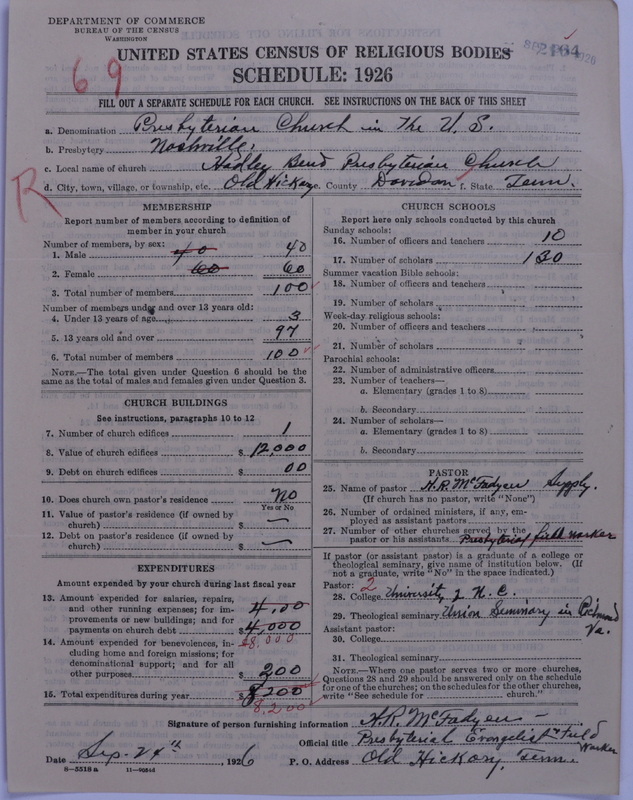 DEPARTMENT OF COMMERCE
BUREAU OF THE CENSUS
WASHINGTON
2164
1926
69
UNITED STATES CENSUS OF RELIGIOUS BODIES
SCHEDULE: 1926
FILL OUT A SEPARATE SCHEDULE FOR EACH CHURCH. SEE INSTRUCTIONS ON THE BACK OF THIS SHEET
a. Denomination Presbyterian Church in the U. S.
b. Presbytery Nashville.
c. Local name of church Hadley Bend Presbyterian Church
R
d. City, town, village, or township, etc. Old Hickory e. County Davidson f. State Tenn.
MEMBERSHIP
Report number of members according to definition of
member in your church
Number of members, by sex:
1. Male 40 40
2. Female 60 60
3. Total number of members 100
Number of members under and over 13 years old:
4. Under 13 years of age 3
5. 13 years old and over 97
6. Total number of members 100
NOTE.—The total given under Question 6 should be
the same as the total of males and females given under Question 3.
CHURCH BUILDINGS
See instructions, paragraphs 10 to 12
7. Number of church edifices 1
8. Value of church edifices $ 12,000
9. Debt on church edifices $ 00
10. Does church own pastor's residence No
Yes or No
11. Value of pastor's residence (if owned by
church) $ —
12. Debt on pastor's residence (if owned by
church) $ —
EXPENDITURES
Amount expended by your church during last fiscal year
13. Amount expended for salaries, repairs,
and other running expenses; for im-
provements or new buildings; and for
payments on church debt $ 4,000
8,000
14. Amount expended for benevolences, in-
cluding home and foreign missions; for
denominational support; and for all
other purposes 200
15. Total expenditures during year $ 8200
8,200
CHURCH SCHOOLS
Report here only schools conducted by this church
Sunday schools:
16. Number of officers and teachers 10
17. Number of scholars 130
Summer vacation Bible schools:
18. Number of officers and teachers
19. Number of scholars
Week-day religious schools:
20. Number of officers and teachers
21. Number of scholars
Parochial schools:
22. Number of administrative officers
23. Number of teachers—
a. Elementary (grades 1 to 8)
b. Secondary
24. Number of scholars—
a. Elementary (grades 1 to 8)
b. Secondary
PASTOR
25. Name of pastor H. R. McFadyen Supply.
(If church has no pastor, write "None")
26. Number of ordained ministers, if any, em-
ployed as assistant pastors
27. Number of other churches served by the
pastor or his assistants Presbyterial field worker
If pastor (or assistant pastor) is a graduate of a college or
theological seminary, give name of institution below. (If
not a graduate, write "No" in the space indicated.)
Pastor: 2
28. College University of N. C.
29. Theological seminary Union Seminary in Richmond
Va.
Assistant pastor:
30. College
31. Theological seminary
NOTE.—Where one pastor serves two or more churches,
Questions 28 and 29 should be answered only on the schedule
for one of the churches; on the schedules for the other churches,
write "See schedule for church."
Signature of person furnishing information H. R. McFadyen
Official title Presbyterial Evangelist & Field
Worker
Date Sep. 24th, 1926 P. O. Address Old Hickory, Tenn.
8—5518 a